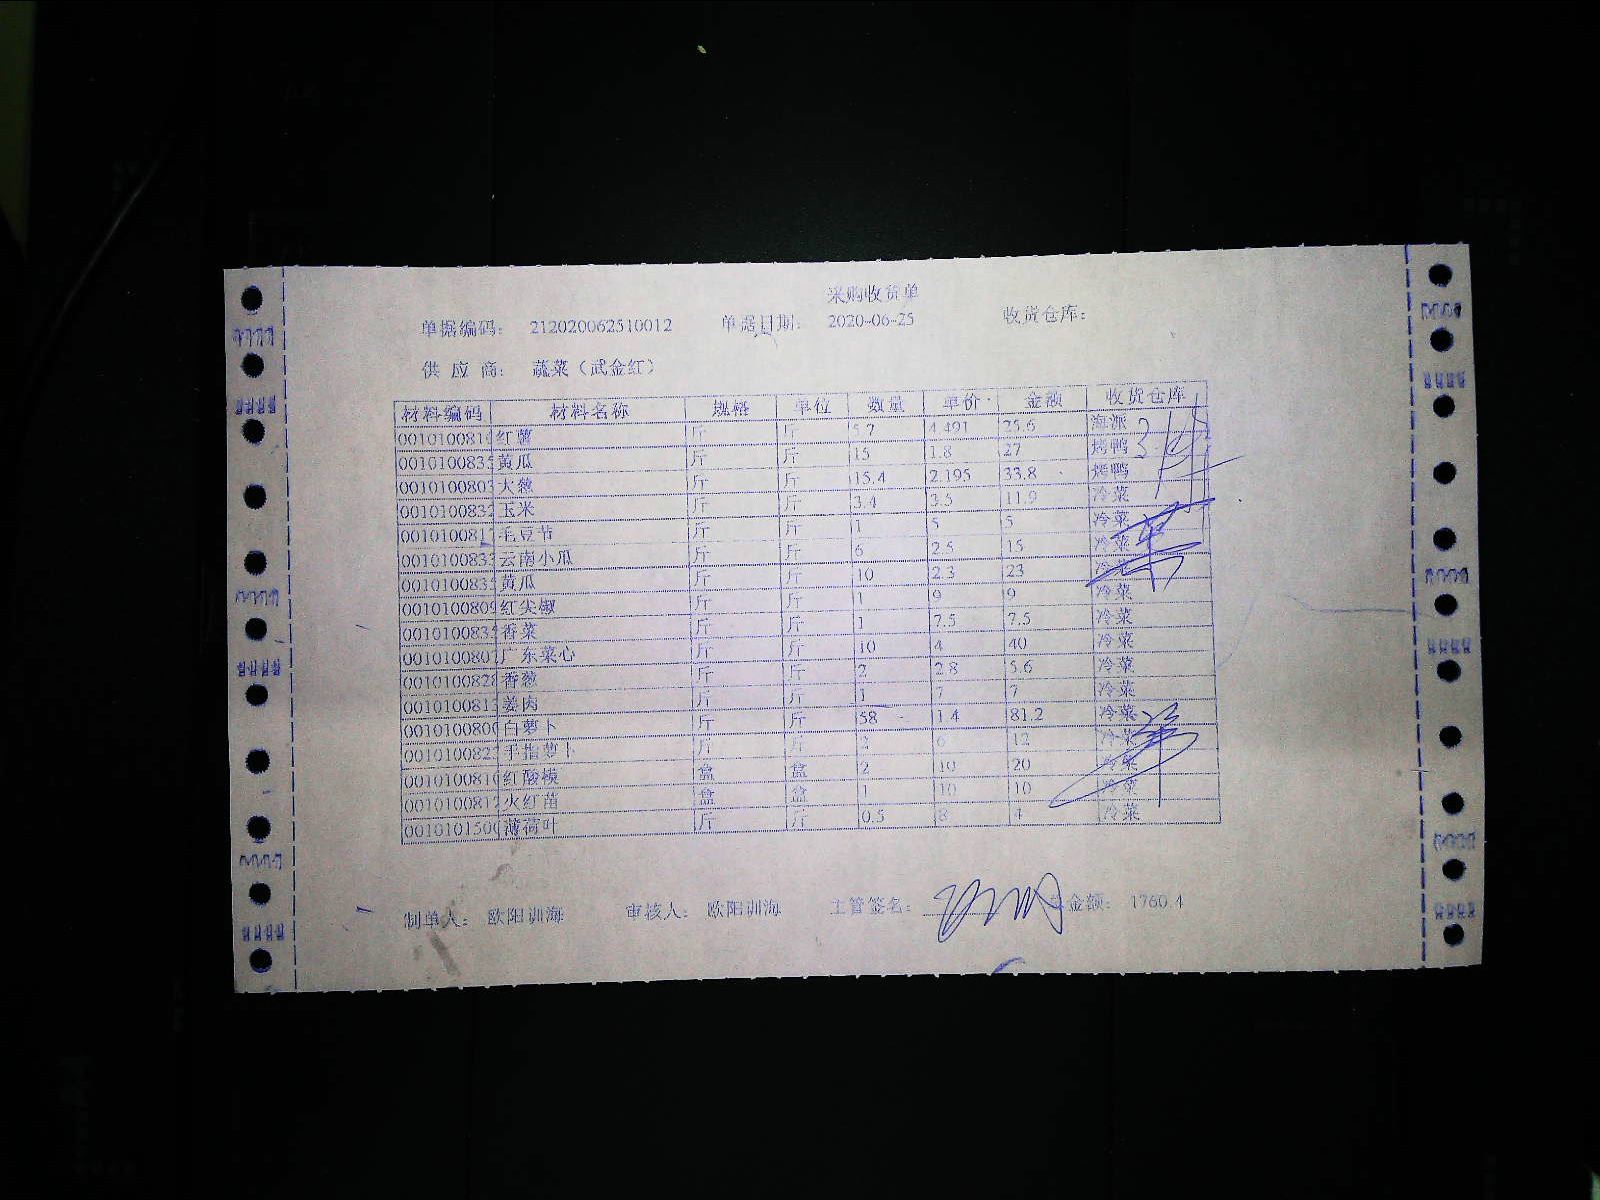 采购收货单
单据编码: 212020062510012 单据日期: 2020-06-25 收货仓库:
供 应 商: 蔬菜（武金红）
材料编码 材料名称 规格 单位 数量 单价 金额 收货仓库
001010081 红薯 斤 斤 5.7 4.491 25.6 海派
001010083 黄瓜 斤 斤 15 1.8 27 烤鸭
001010080 大葱 斤 斤 15.4 2.195 33.8 烤鸭
001010083 玉米 斤 斤 3.4 3.5 11.9 冷菜
001010081 毛豆节 斤 斤 1 5 5 冷菜
001010083 云南小瓜 斤 斤 6 2.5 15 冷菜
001010083 黄瓜 斤 斤 10 2.3 23 冷菜
001010080 红尖椒 斤 斤 1 9 9 冷菜
001010083 香菜 斤 斤 1 7.5 7.5 冷菜
001010080 广东菜心 斤 斤 10 4 40 冷菜
001010082 香葱 斤 斤 2 2.8 5.6 冷菜
001010081 姜肉 斤 斤 1 7 7 冷菜
001010080 白萝卜 斤 斤 58 1.4 81.2 冷菜
001010082 手指萝卜 斤 斤 2 6 12 冷菜
001010081 红酸模 盒 盒 2 10 20 冷菜
001010081 火红苗 盒 盒 1 10 10 冷菜
001010150 薄荷叶 斤 斤 0.5 8 4 冷菜
制单人: 欧阳训海 审核人: 欧阳训海 主管签名: 金额: 1760.4